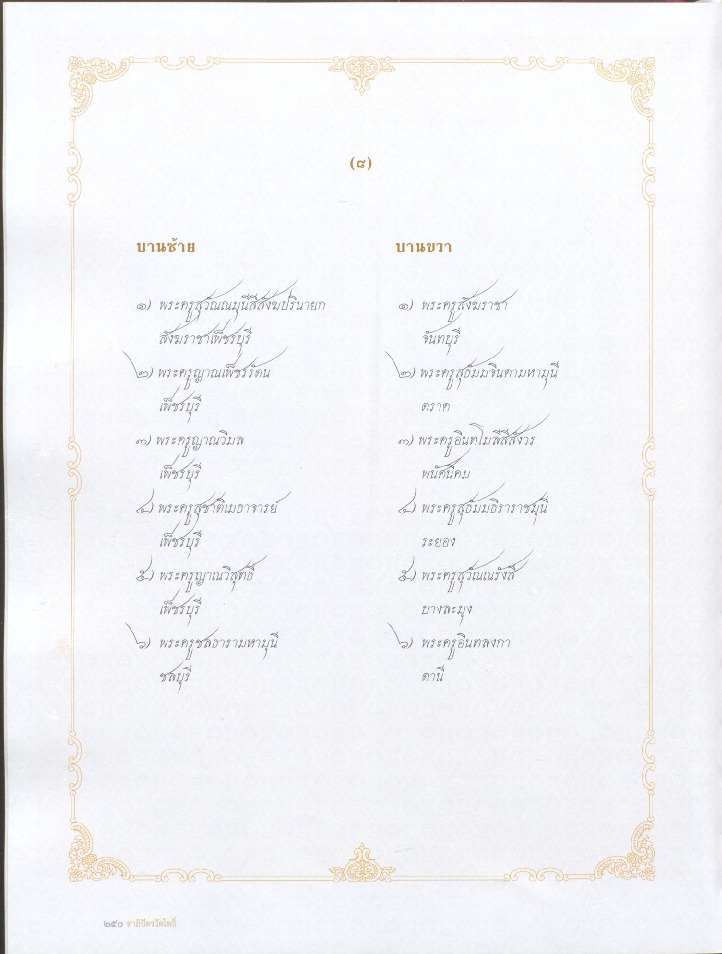 (๘)
บานซ้าย
๑) พระครูสุวัณณมุนีสีสังฆปรินายก
สังฆราชาเพ็ชรบุรี
๒) พระครูญาณเพ็ชร์รัตน
เพ็ชรบุรี
๓) พระครูญาณวิมล
เพ็ชรบุรี
๔) พระครูสุชาติเมธาจารย์
เพ็ชรบุรี
๕) พระครูญาณวิสุทธิ์
เพ็ชรบุรี
๖) พระครูชลธารามหามุนี
ชลบุรี
บานขวา
๑) พระครูสังฆราชา
จันทบุรี
๒) พระครูสุธัมมจินดามหามุนี
ตราด
๓) พระครูอินทโมลีสีสังวร
พนัศนิคม
๔) พระครูสุธัมมธิราราชมุนี
ระยอง
๕) พระครูสุวัณณรังสี
บางละมุง
๖) พระครูอินทลงกา
ตานี
๒๕๐ ตาลิปัตรวัดโพธิ์